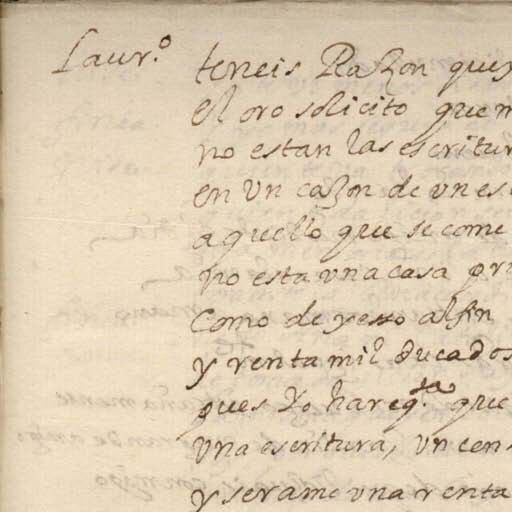 Laur.º teneis Razon quex
el oro solicito que m
no estan las escritur
en Un caxon de un es
aquello que se come
no esta una casa pri
Como de yesso al fin
y renta mil ducados
pues Yo hare q.ta que
Una escritura, un cen
y serame una renta